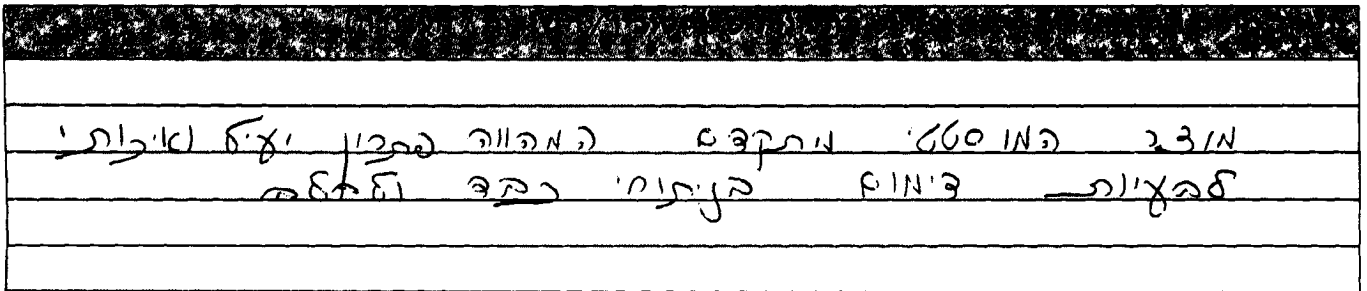 מוצר המוסטטי מתקדם המהווה פתרון יעיל ואיכותי
לבעיות דימום בניתוחי כבד